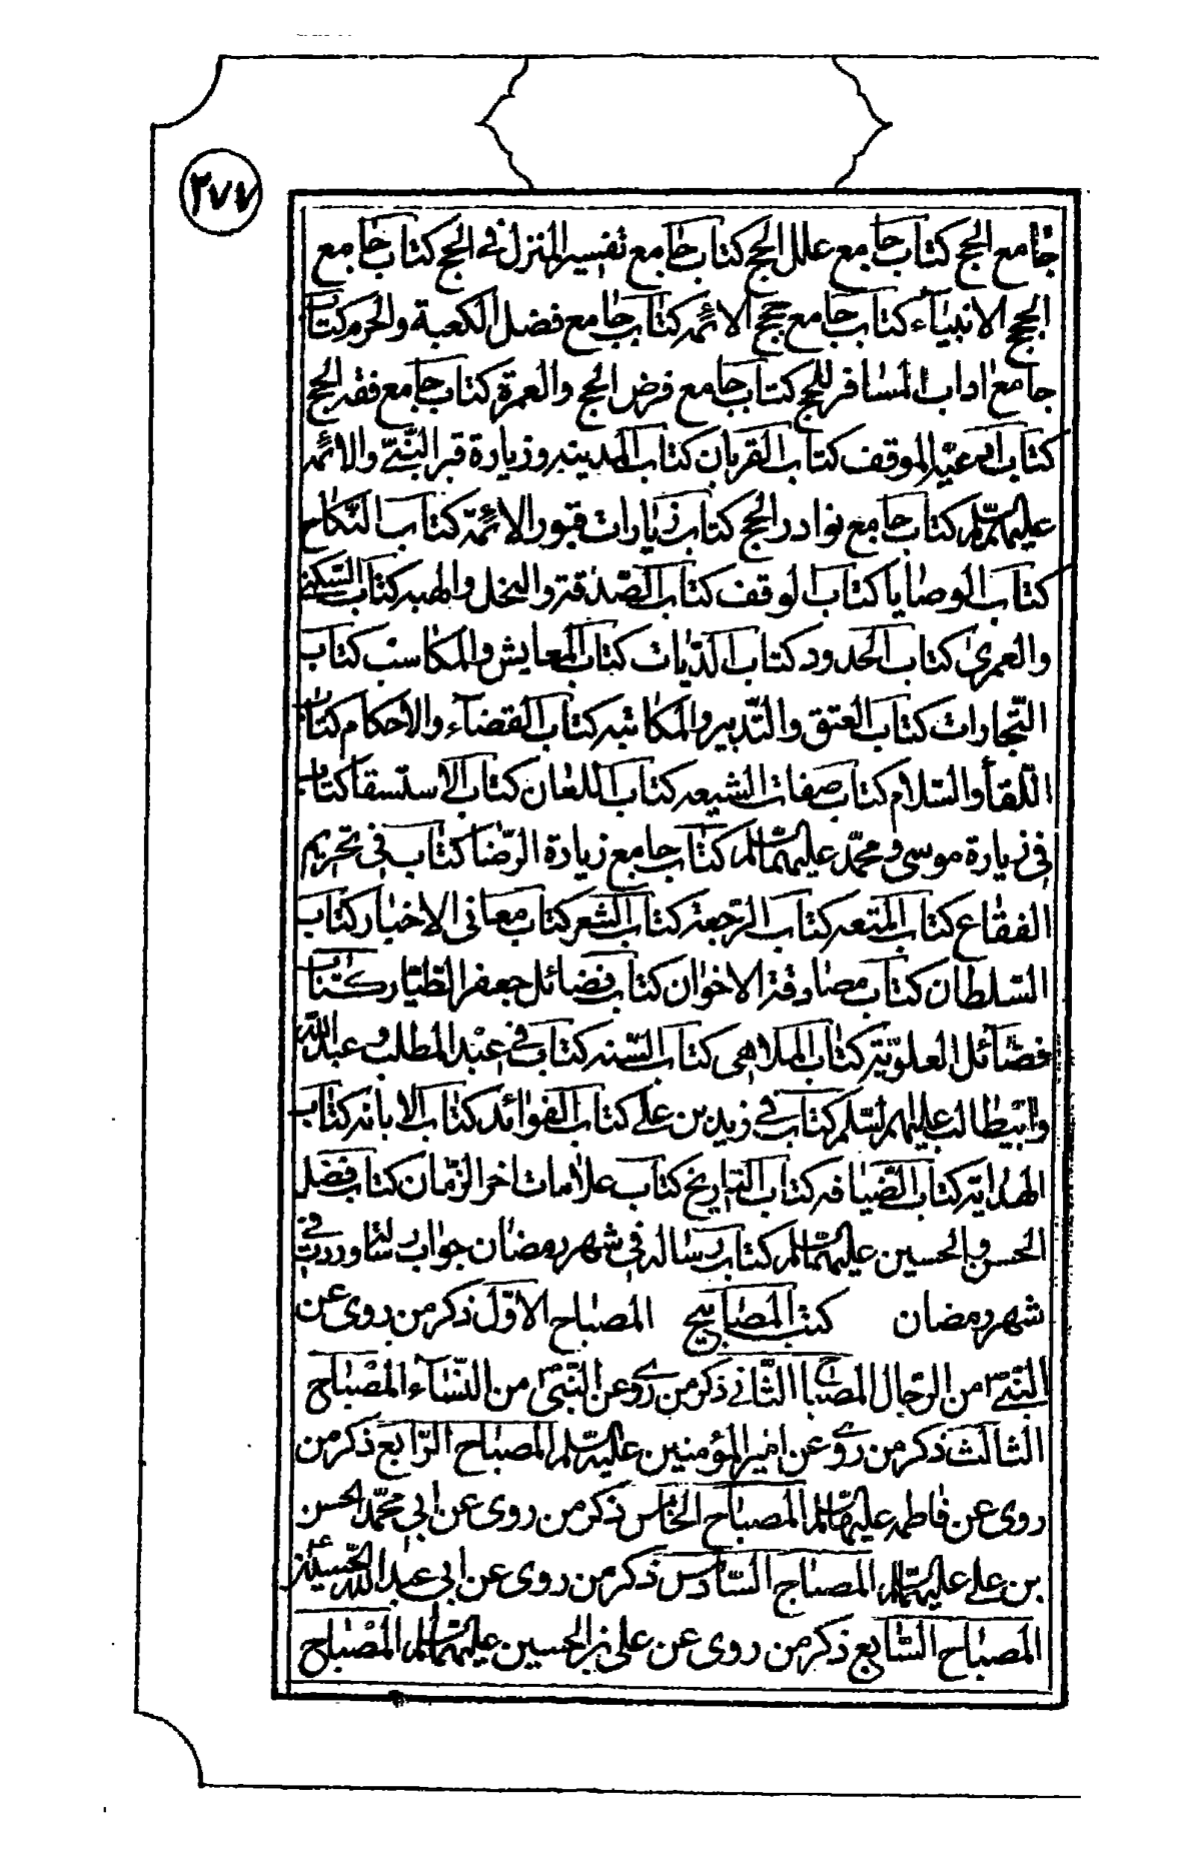 ٢٧٧
جامع الحج كتاب جامع علل الحج كتاب جامع تفسير المنزل في الحج كتاب جامع
الحجج الانبياء كتاب جامع حجج الائمه كتاب جامع فضل الكعبة والحرم كتاب
جامع اداب المسافر للحج كتاب جامع فرض الحج والعمرة كتاب جامع فقه الحج
كتاب ادعية الموقف كتاب القربان كتاب المدينه وزيارة قبر النبي والائمه
عليهم السلم كتاب جامع نوادر الحج كتاب زيارات قبور الائمة كتاب النكاح
كتاب الوصايا كتاب الوقف كتاب الصدقة والنحل والهبه كتاب السكنى
والعمرى كتاب الحدود كتاب الديات كتاب المعايش والمكاسب كتاب
التجارات كتاب العتق والتدبير والمكاتبه كتاب القضاء والاحكام كتاب
اللقأ والسلام كتاب صفات الشيعه كتاب اللعان كتاب الاستسقا كتاب
في زيارة موسى و محمد عليهما السلم كتاب جامع زيارة الرضا كتاب في تحريم
الفقاع كتاب المتعه كتاب الرجعة كتاب الشعر كتاب معانى الاخبار كتاب
السلطان كتاب مصادقة الاخوان كتاب فضائل جعفر الطيار كتاب
فضائل العلوية كتاب الملاهى كتاب السنه كتاب في عبد المطلب و عبد الله
وابيطالب عليهم السلم كتاب في زيد بن علي كتاب الفوائد كتاب الابانه كتاب
الهداية كتاب الضيافه كتاب التاريخ كتاب علامات اخر الزمان كتاب فضل
الحسن والحسين عليهما السلم كتاب رساله في شهر رمضان جواب رسالة وردت في
شهر رمضان كتب المصابيح المصباح الاول ذكر من روى عن
النبي من الرجال المصباح الثاني ذكر من روى عن النبي من النساء المصباح
الثالث ذكر من روى عن امير المؤمنين عليه السلم المصباح الرابع ذكر من
روى عن فاطمه عليها السلم المصباح الخامس ذكر من روى عن ابي محمد الحسن
بن علي عليهما السلم المصباح السادس ذكر من روى عن ابي عبد الله الحسين ع
المصباح السابع ذكر من روى عن علي بن الحسين عليهما السلم المصباح